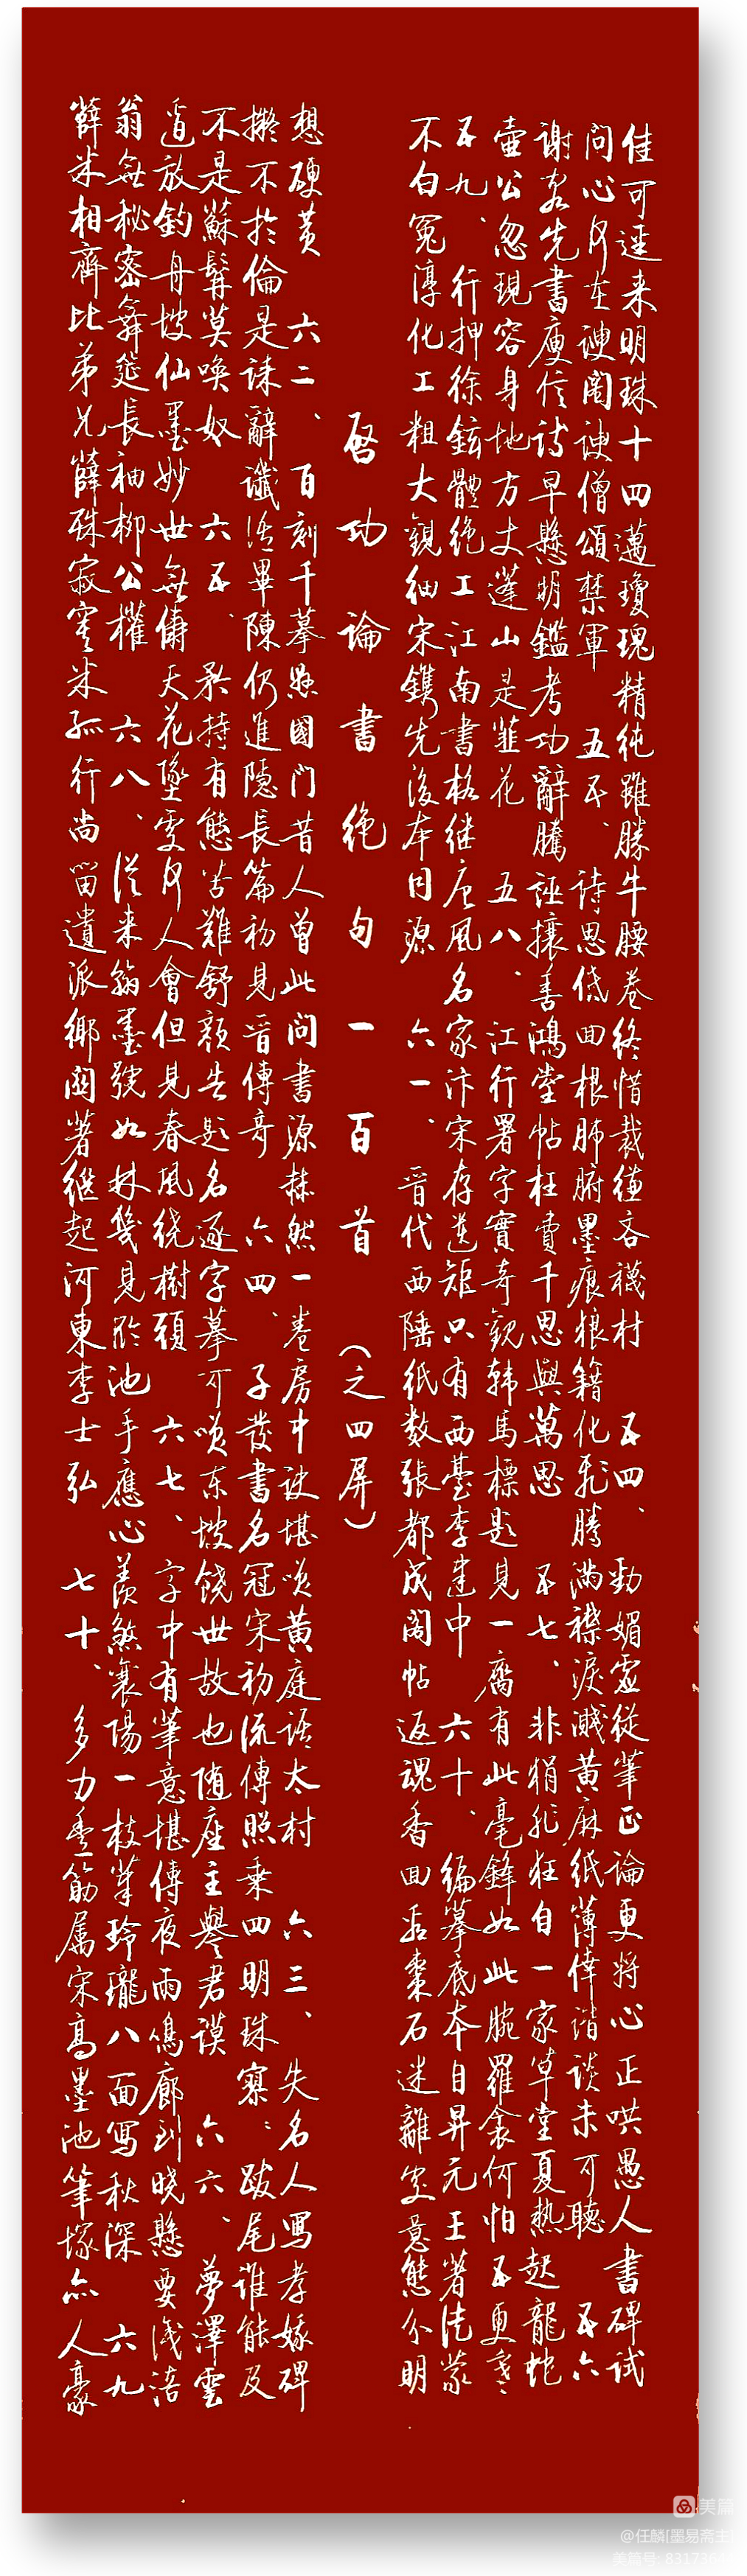 佳可逕来明珠十四邁瓊瑰精純雖勝牛腰卷終惜裁縫吝襪材　五四、　勁媚虛從筆正論更將心正哄愚人書碑試
問心何在諛閹諛僧頌禁軍　五五、　詩思低回根肺腑墨痕狼籍化飛騰滿襟淚濺黃麻紙薄倖誚談未可聽　五六
謝客先書庾信詩早懸明鑑考功辭騰誣攘善鴻堂帖枉費千思與萬思　五七、　非狷非狂自一家草堂夏熱起龍蛇
壺公忽現容身地方丈蓬山是韮花　五八、　江行署字實奇觀韩馬標題見一腐有此毫鋒如此腕羅衾何怕五更寒
五九、　行押徐鉉體絶工江南書格继唐風名家汴宋存遺矩只有西臺李建中　六十、　編摹底本自昇元王著徒蒙
不白冤淳化工粗大觀细宋鐫先後本同源　六一、　晋代西陲纸数張都成閣帖返魂香回看棗石迷離處意態分明
启功論書絶句一百首　（之四屏）
想硬黃　六二、　百刻千摹懸國門昔人曾此問書源赫然一卷房中诀堪笑黃庭語太村　六三、　失名人寫孝娥碑
擬不於倫是諛辭讖语畢陳仍進隱長篇初見晋傳奇　六四、　子發書名冠宋初流傳照乘四明珠寥〻跋尾谁能及
不是蘇髯莫唤奴　六五、　矜持有態苦難舒颜告題名逐字摹可笑东坡饒世故也随座主譽君謨　六六、　夢澤雲
邊放釣舟坡仙墨妙世無儔天花墜處何人會但見春風绕樹頭　六七、　字中有筆意堪傳夜雨鳴廊到晓懸要識涪
翁無秘密舞筵長袖柳公權　六八、　從来翰墨號如林幾見臨池手應心羡煞襄陽一枝筆玲瓏八面寫秋深　六九
薛米相齊比弟兄薛殊寂寞米孤行尚留遺派鄉閭著继起河東李士弘　七十、　多力豐筋屬宋高墨池筆塚亦人豪
美篇
@任麟[墨易斋主]